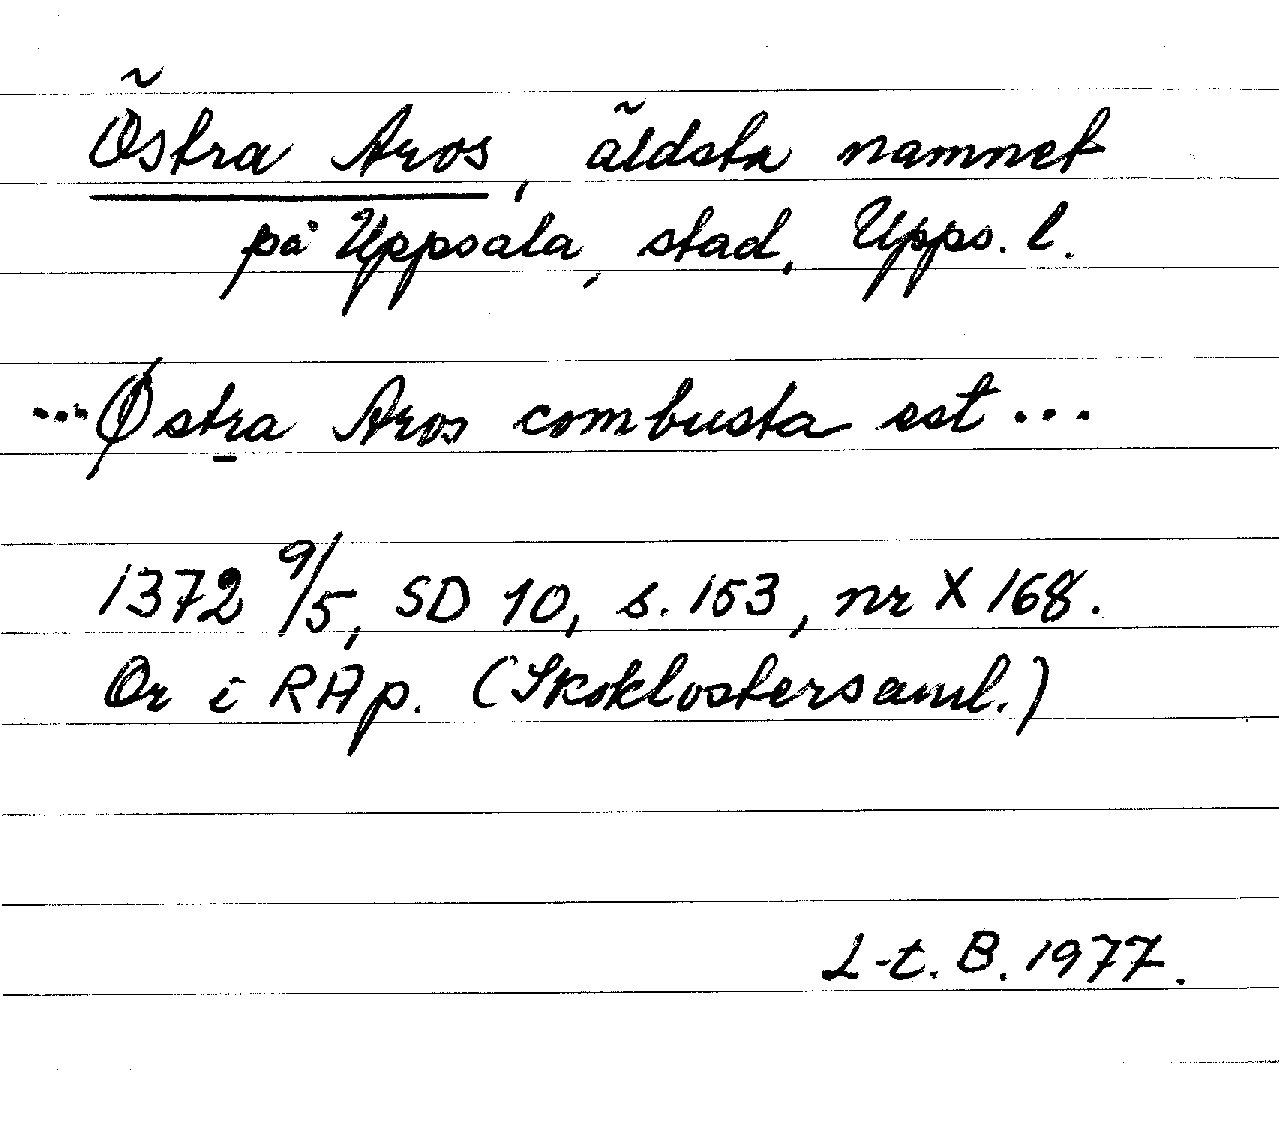 Östra Aros, äldsta namnet
på Uppsala, stad, Upps. l.
...Østra Aros combusta est...
1372 9/5, SD 10, s. 153, nr X 168.
Or i RAp. (Skoklostersaml.)
L-t. B. 1977.